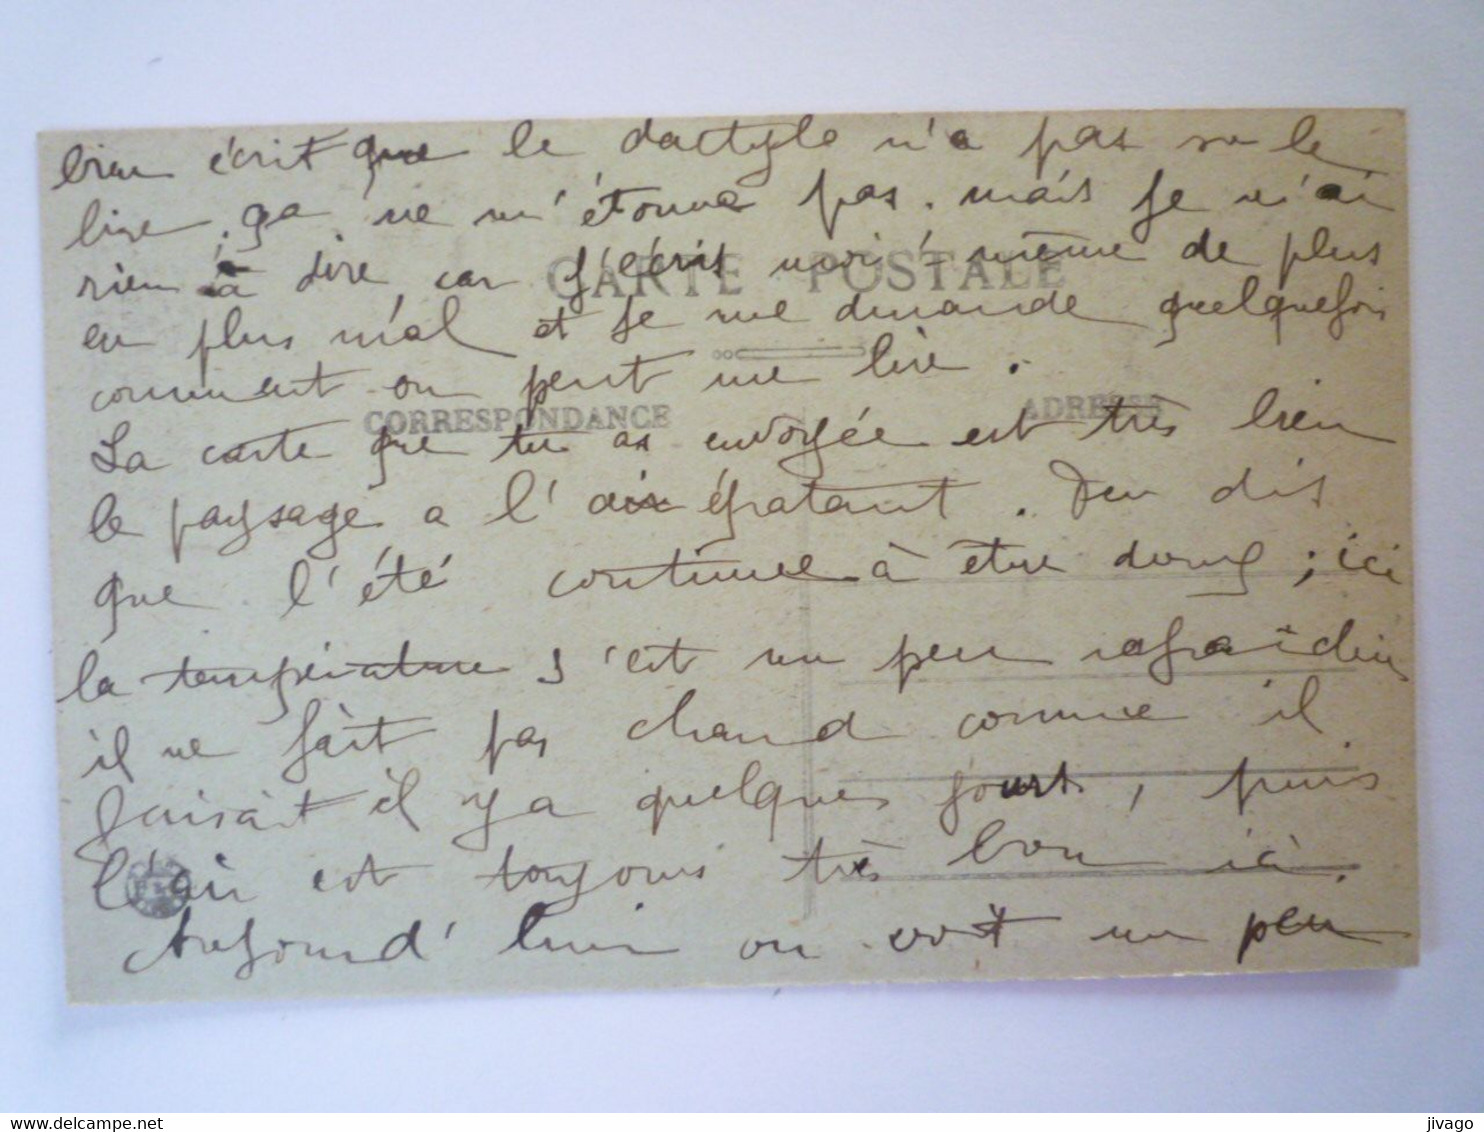 bien écrit que le dactyle n'a pas su le
lire, ça ne m'étonne pas. mais je n'ai
rien à dire car j'écris moi-même de plus
CARTE POSTALE
en plus mal et je me demande quelquefois
comment on peut me lire.
CORRESPONDANCE
ADRESSE
La carte que tu as envoyée est très bien
le paysage a l'air épatant. Tu dis
que l'été continue à être doux ; ici
la température s'est un peu rafraîchie
il ne fait pas chaud comme il
faisait il y a quelques jours, puis
l'air est toujours très bon ici.
Aujourd'hui on voit un peu
delcampe.net
jivago